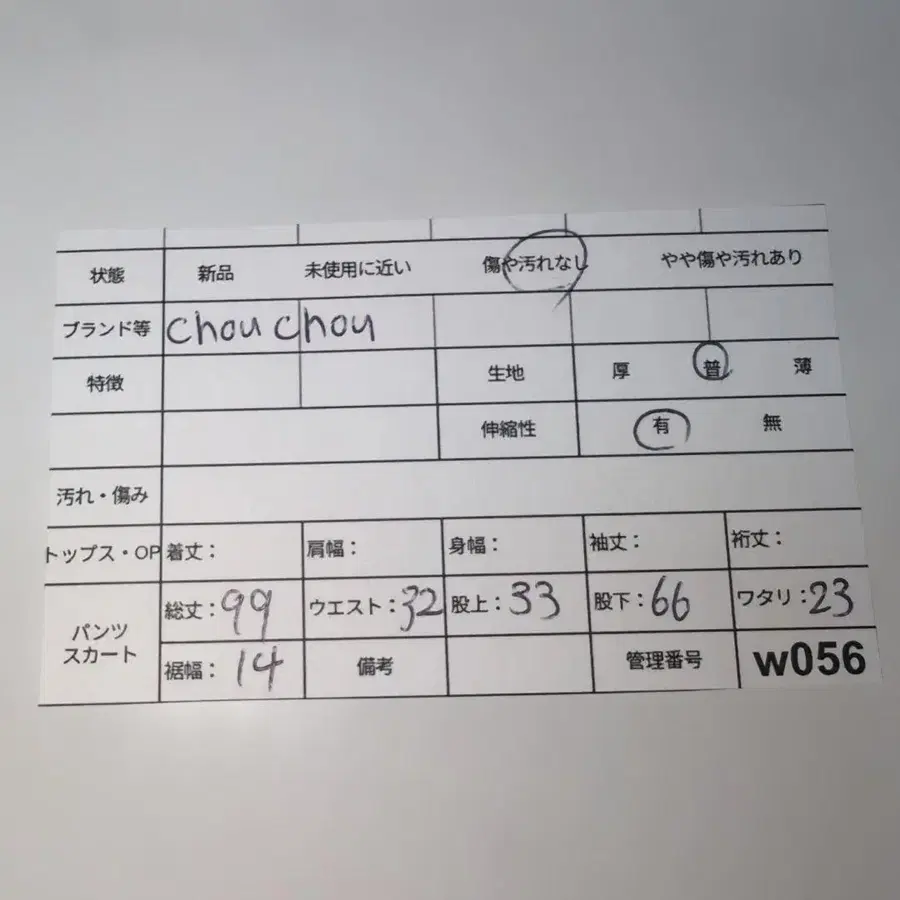 状態 新品 未使用に近い 傷や汚れなし やや傷や汚れあり
ブランド等 chou chou
特徴 生地 厚 普 薄
伸縮性 有 無
汚れ・傷み
トップス・OP 着丈: 肩幅: 身幅: 袖丈: 裄丈:
パンツ スカート 総丈:99 ウエスト:32 股上:33 股下:66 ワタリ:23
裾幅:14 備考 管理番号 w056